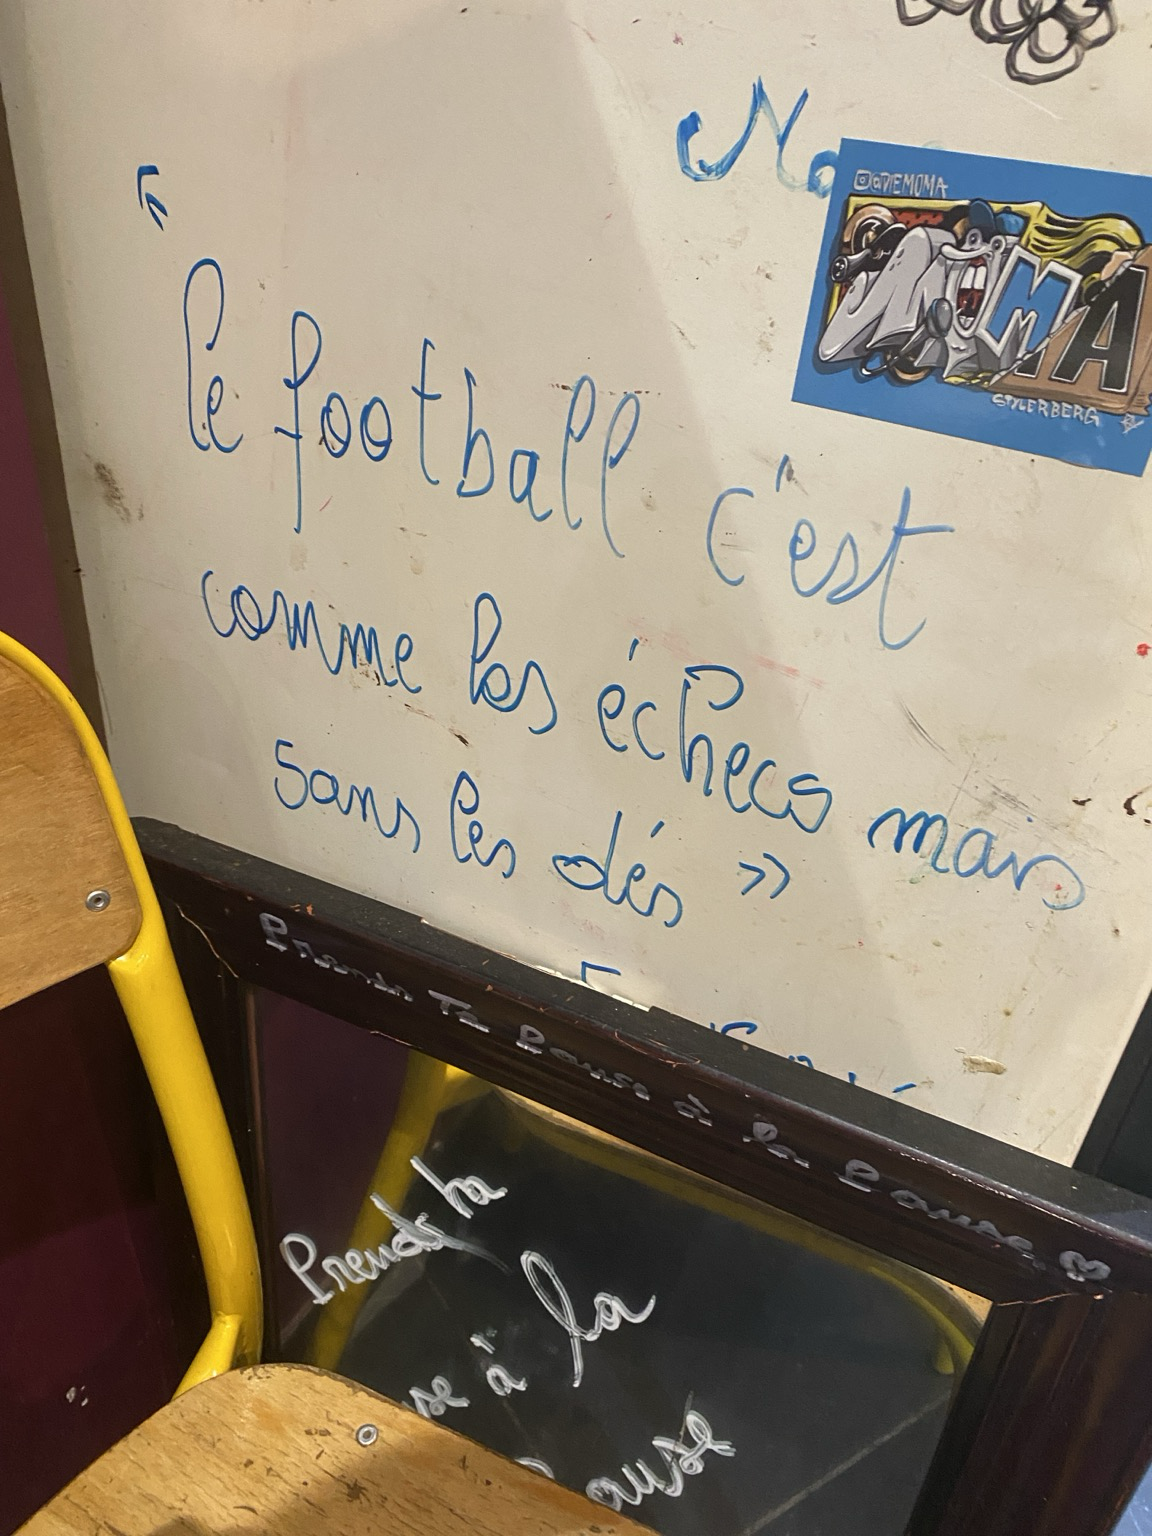 No
@VIEMOMA
MOMA
STYLERBERG
« le football c'est
comme les échecs mais
sans les dés »
Prends Ta Pause à la Pause
Prends ta
se à la
ause